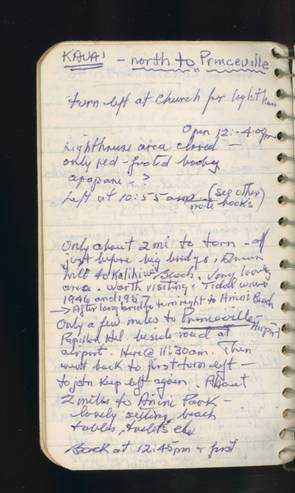 KAUAI - north to Princeville
turn left at church for light house
Open 12:-4:00pm
Lighthouse area closed -
only red-footed booby
apapane - ?
Left at 10:55am. (see other
note books
Only about 2 mi to turn-off
just before big bridge. Down
hill to Kalihiwai Beach. Very lovely
area. Worth visiting. Tidal wave
1946 and 1957
→ After long bridge turn right to Anini Beach
Only a few miles to Princeville Airport
Papillon Hel. beside road at
airport. Here @ 11:30am. Then
went back to first turn left -
to join keep left again. About
2 miles to Anini Park -
lovely setting, beach
tables, toilets etc
Back at 12:45pm &